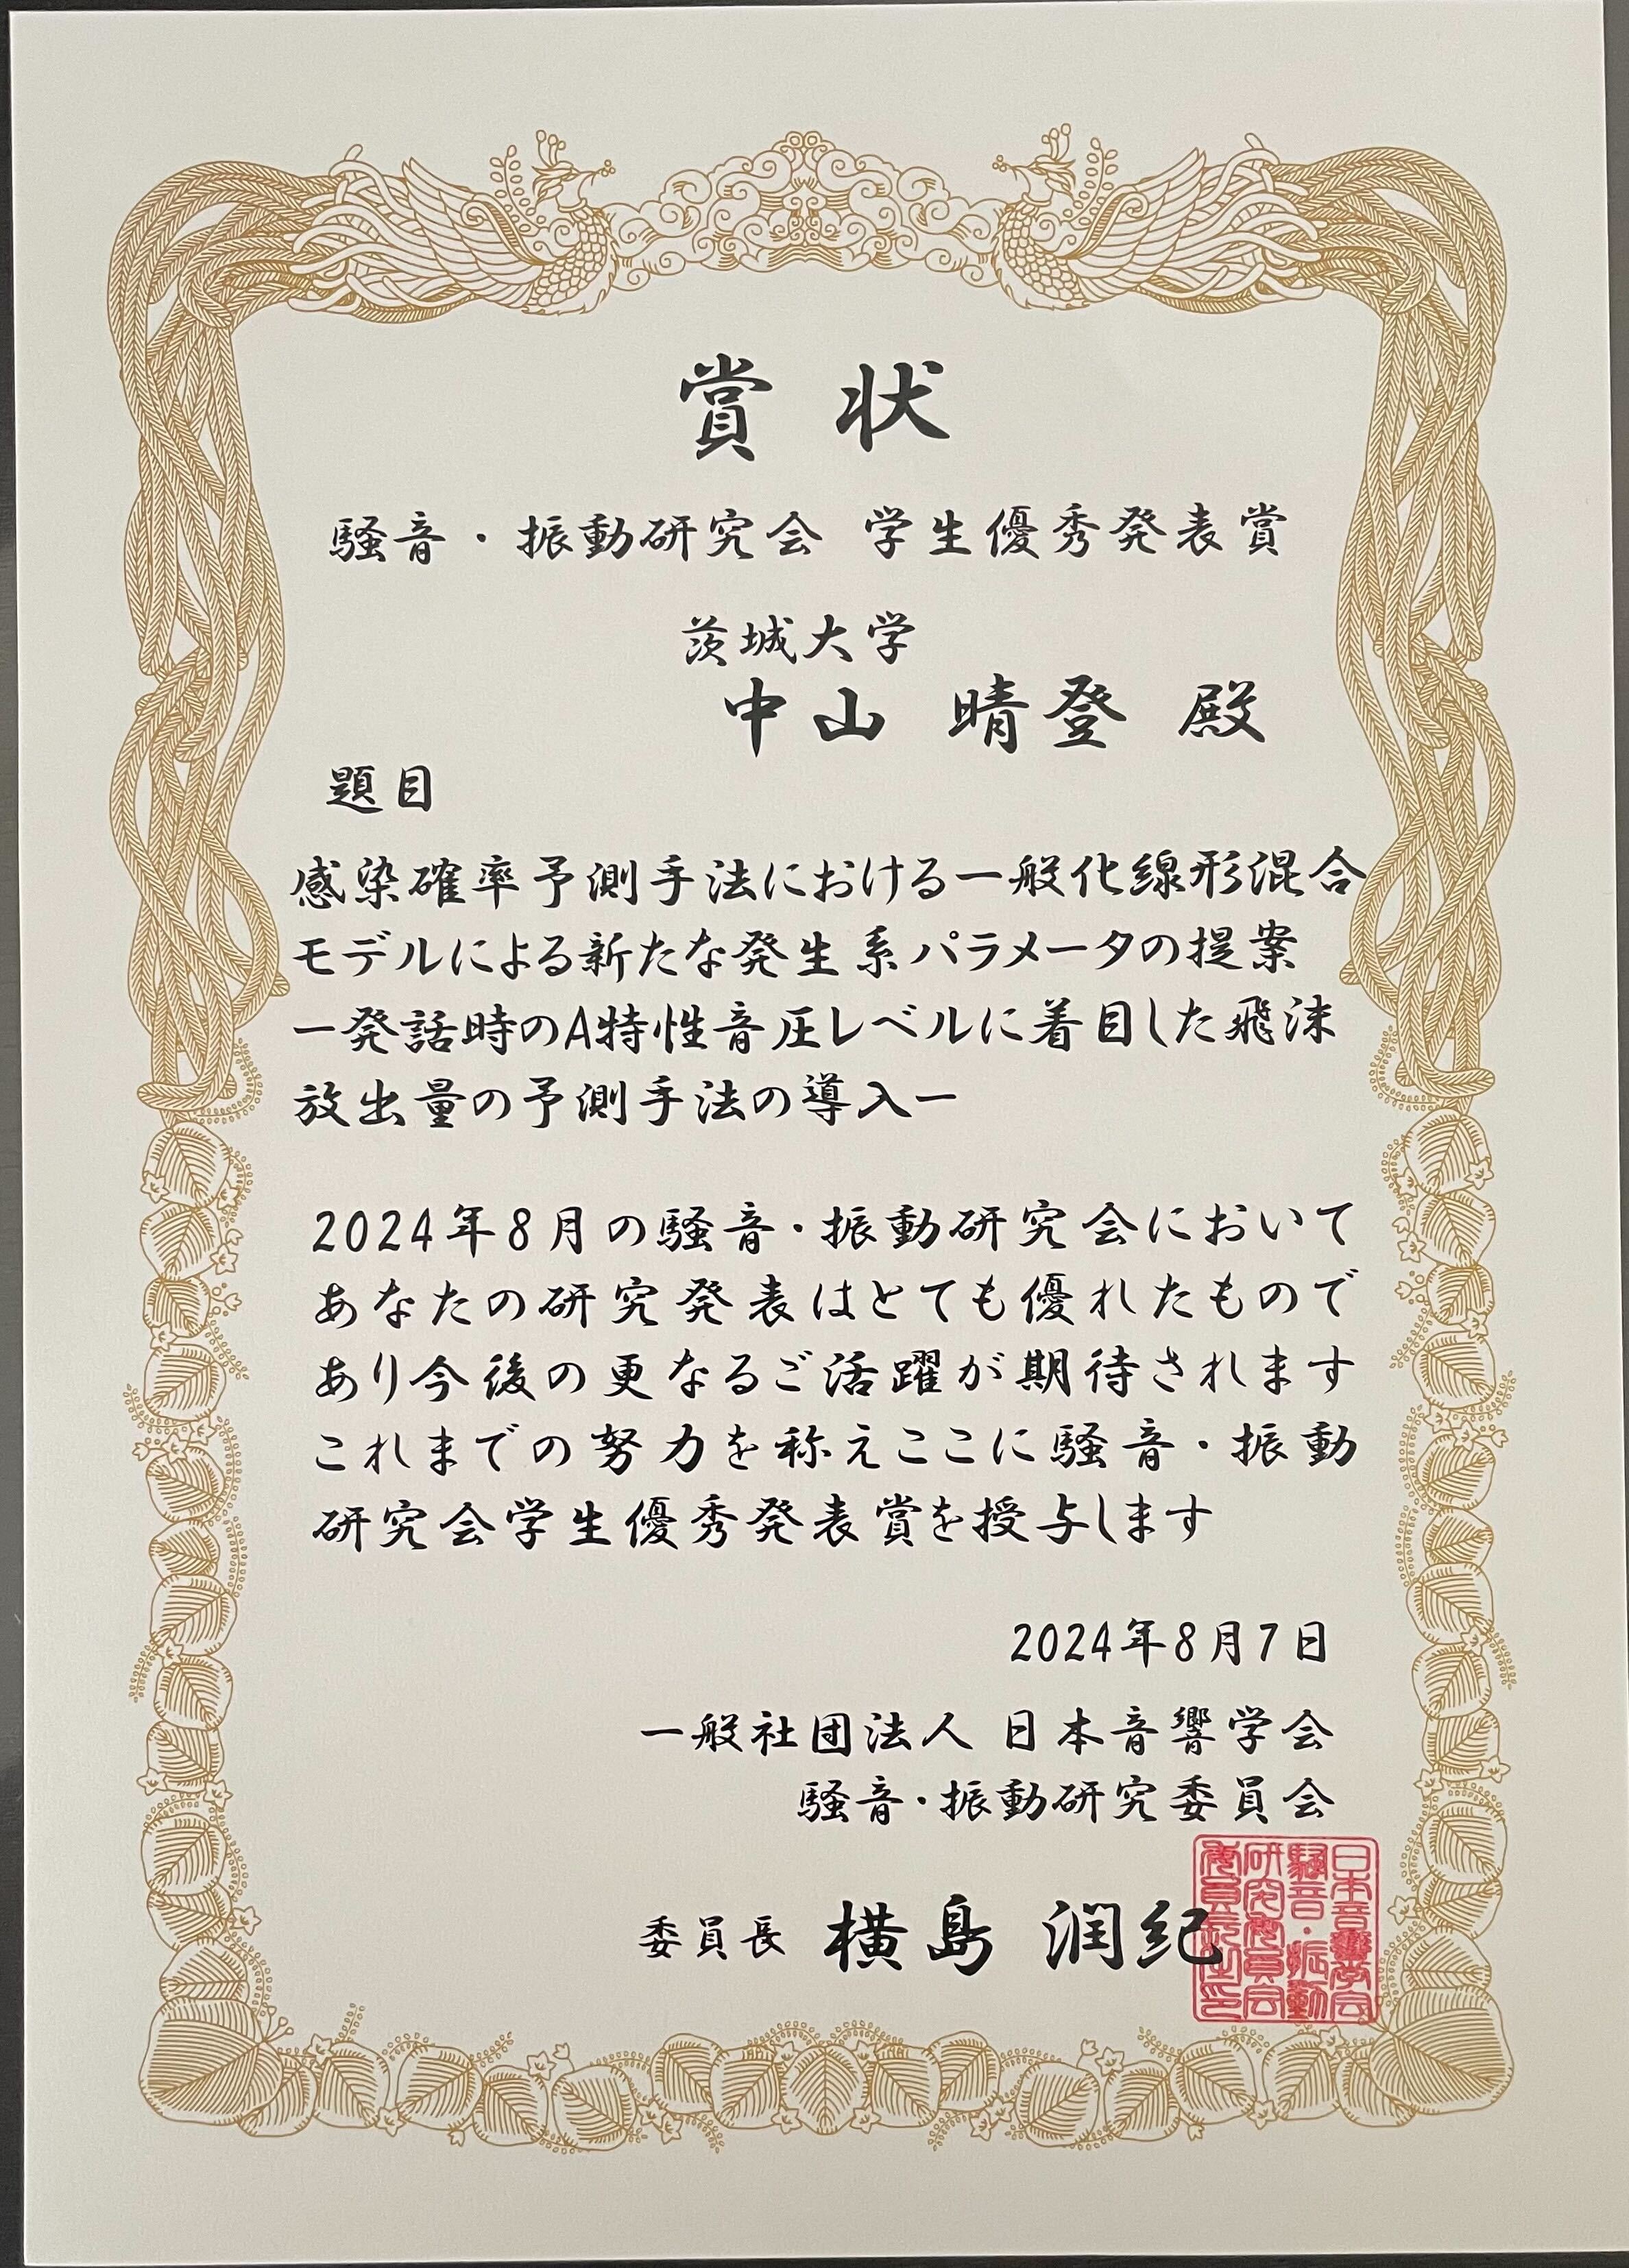 賞状
騒音・振動研究会 学生優秀発表賞
茨城大学
中山 晴登 殿
題目
感染確率予測手法における一般化線形混合
モデルによる新たな発生系パラメータの提案
ー発話時のA特性音圧レベルに着目した飛沫
放出量の予測手法の導入ー
2024年8月の騒音・振動研究会において
あなたの研究発表はとても優れたもので
あり今後の更なるご活躍が期待されます
これまでの努力を称えここに騒音・振動
研究会学生優秀発表賞を授与します
2024年8月7日
一般社団法人 日本音響学会
騒音・振動研究委員会
委員長 横島 潤紀
日本音響学会
騒音・振動
研究委員会
委員長之印